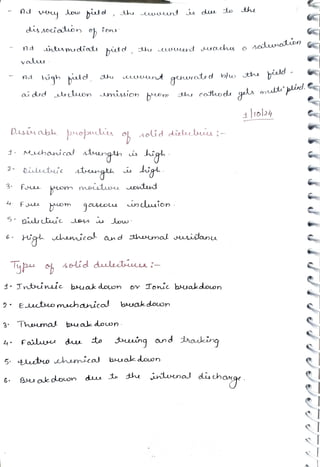 - At very low field, the current is due to the
dissociation of ions
- At intermediate field, the current reaches a saturation
value.
- At high field, the current generated b/w the field -
aided electron emission from the cathode gets multiplied.
1/10/24
Desirable properties of solid dielectrics :-
1. Mechanical strength is high.
2. Dielectric strength is high.
3. Free from moisture content
4. Free from gaseous inclusion.
5. Dielectric loss is low.
6. High chemical and thermal resistance
Types of solid dielectrics :-
1. Intrinsic breakdown or Ionic breakdown
2. Electromechanical breakdown
3. Thermal breakdown
4. Failure due to treeing and tracking
5. electro chemical breakdown
6. Breakdown due to the internal discharge.